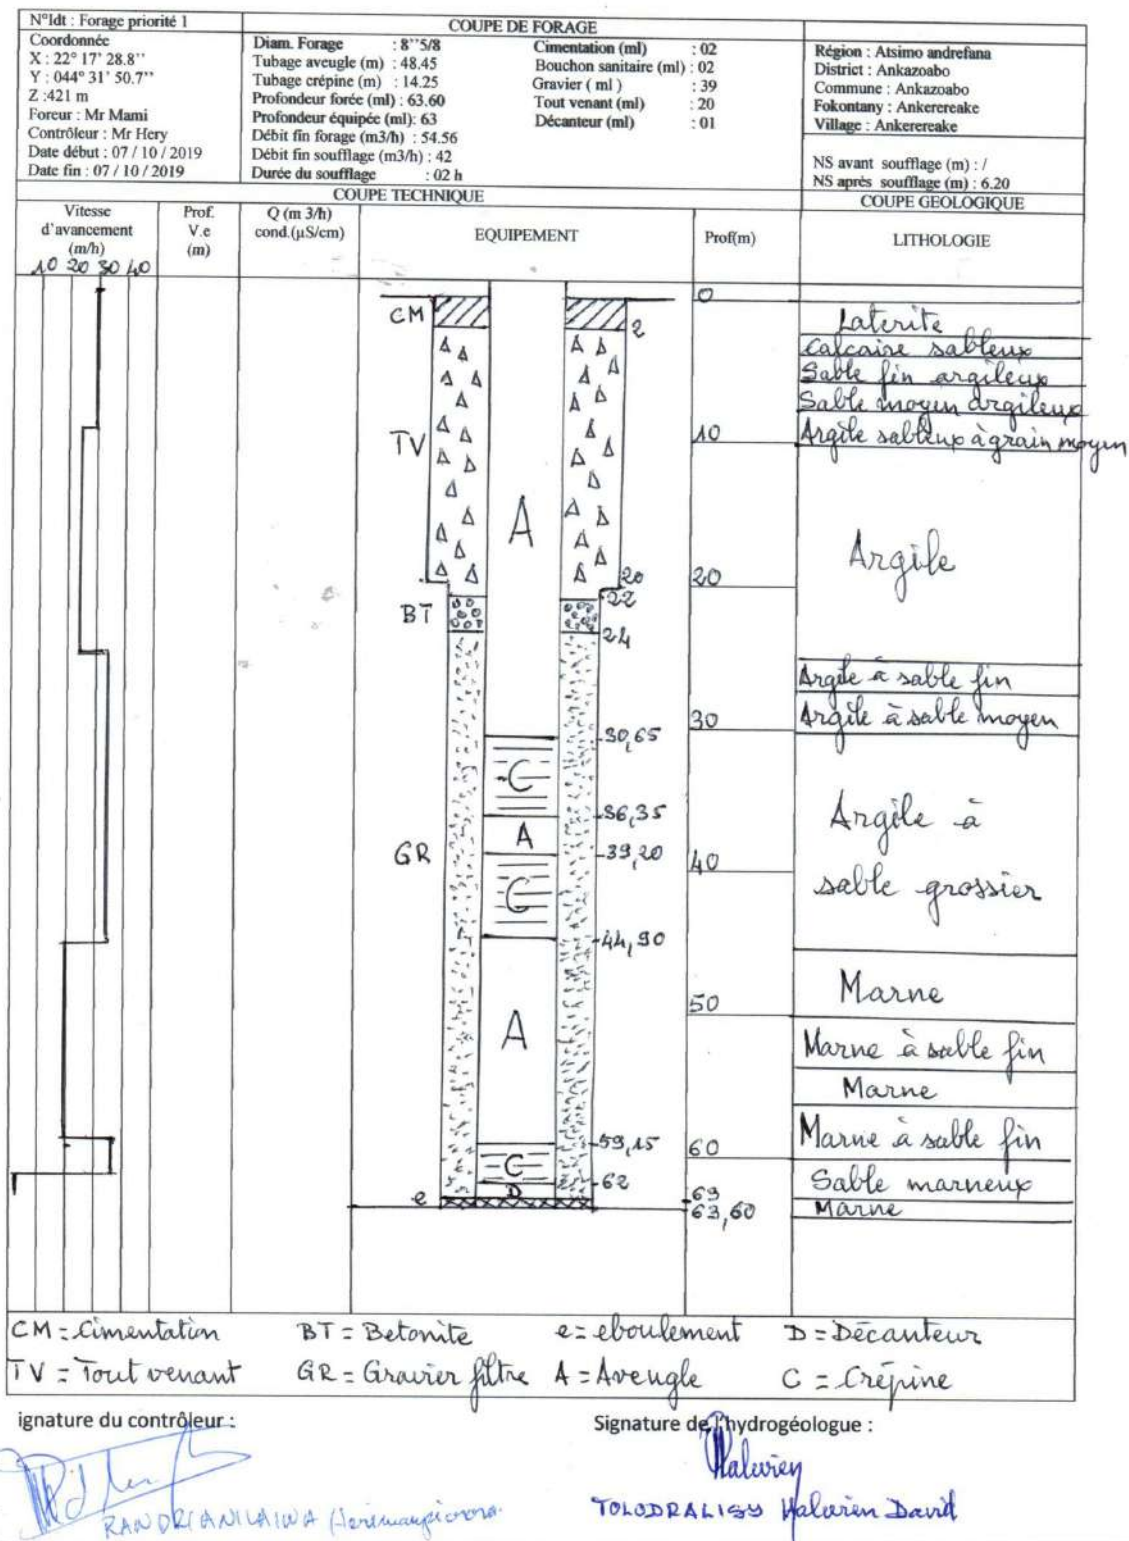 N°Idt : Forage priorité 1
COUPE DE FORAGE
Coordonnée
X : 22° 17' 28.8''
Y : 044° 31' 50.7''
Z :421 m
Foreur : Mr Mami
Contrôleur : Mr Hery
Date début : 07 / 10 / 2019
Date fin : 07 / 10 / 2019
Diam. Forage : 8''5/8
Tubage aveugle (m) : 48.45
Tubage crépine (m) : 14.25
Profondeur forée (ml) : 63.60
Profondeur équipée (ml): 63
Débit fin forage (m3/h) : 54.56
Débit fin soufflage (m3/h) : 42
Durée du soufflage : 02 h
Cimentation (ml) : 02
Bouchon sanitaire (ml) : 02
Gravier ( ml ) : 39
Tout venant (ml) : 20
Décanteur (ml) : 01
Région : Atsimo andrefana
District : Ankazoabo
Commune : Ankazoabo
Fokontany : Ankerereake
Village : Ankerereake
NS avant soufflage (m) : /
NS après soufflage (m) : 6.20
COUPE TECHNIQUE
COUPE GEOLOGIQUE
Vitesse
d'avancement
(m/h)
10 20 30 40
Prof.
V.e
(m)
Q (m 3/h)
cond.(µS/cm)
EQUIPEMENT
Prof(m)
LITHOLOGIE
CM
2
TV
A
20
22
BT
24
30,65
C
36,35
A
39,20
GR
C
44,90
A
59,15
C
62
D
e
0
10
20
30
40
50
60
63
63,60
Laterite
Calcaire sableux
Sable fin argileux
Sable moyen argileux
Argile sableux à grain moyen
Argile
Argile à sable fin
Argile à sable moyen
Argile à
sable grossier
Marne
Marne à sable fin
Marne
Marne à sable fin
Sable marneux
Marne
CM = Cimentation BT = Betonite e = eboulement D = Décanteur
TV = Tout venant GR = Gravier filtre A = Aveugle C = Crépine
ignature du contrôleur :
Signature de l'hydrogéologue :
Halavien
TOLODRALISY Halavien David